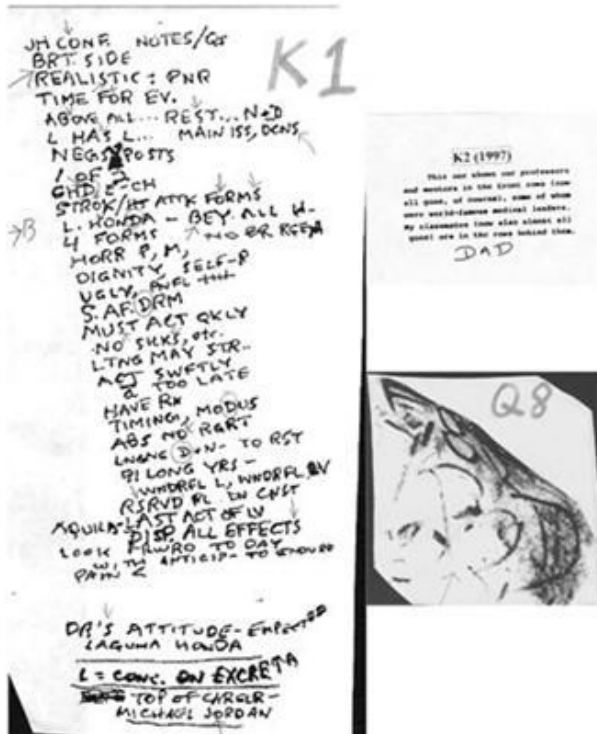 K1
JH CONF. NOTES/Qs
BRT. SIDE
REALISTIC: PNR
TIME FOR EV.
ABOVE ALL... REST... N=D
L HAS L... MAIN ISS, DCNS
NEGS POSTS
1 OF 2
GHD, E-CH
STROK/HT ATTK FORMS
B
L. HONDA - BEY. ALL H-
4 FORMS NO BR
HORR P, M,
DIGNITY, SELF-R
UGLY, PNFL ++++
S. AF. DRM
MUST ACT QKLY
NO SKKS, etc.
LTNG MAY STR..
ACT SWFTLY
TOO LATE
HAVE RX
TIMING, MODUS
ABS NO RGRT
TO RST
91 LONG YRS -
WNDRFL L, WNDRFL LV
RSRVD PL IN CNST
AQUILA-LAST ACT OF LV
DISP. ALL EFFECTS
LOOK FRWRD TO DAY
WITH ANTICIP- TO
PAIN
DR'S ATTITUDE-
LAGUNA HONDA
L = CONC. ON EXCRETA
TOP OF CAREER-
MICHAEL JORDAN
K2 (1997)
This one shows our professors
and mentors in the front rows (now
all gone, of course), some of whom
were world-famous medical leaders.
My classmates (now also almost all
gone) are in the rows behind them.
DAD
Q8